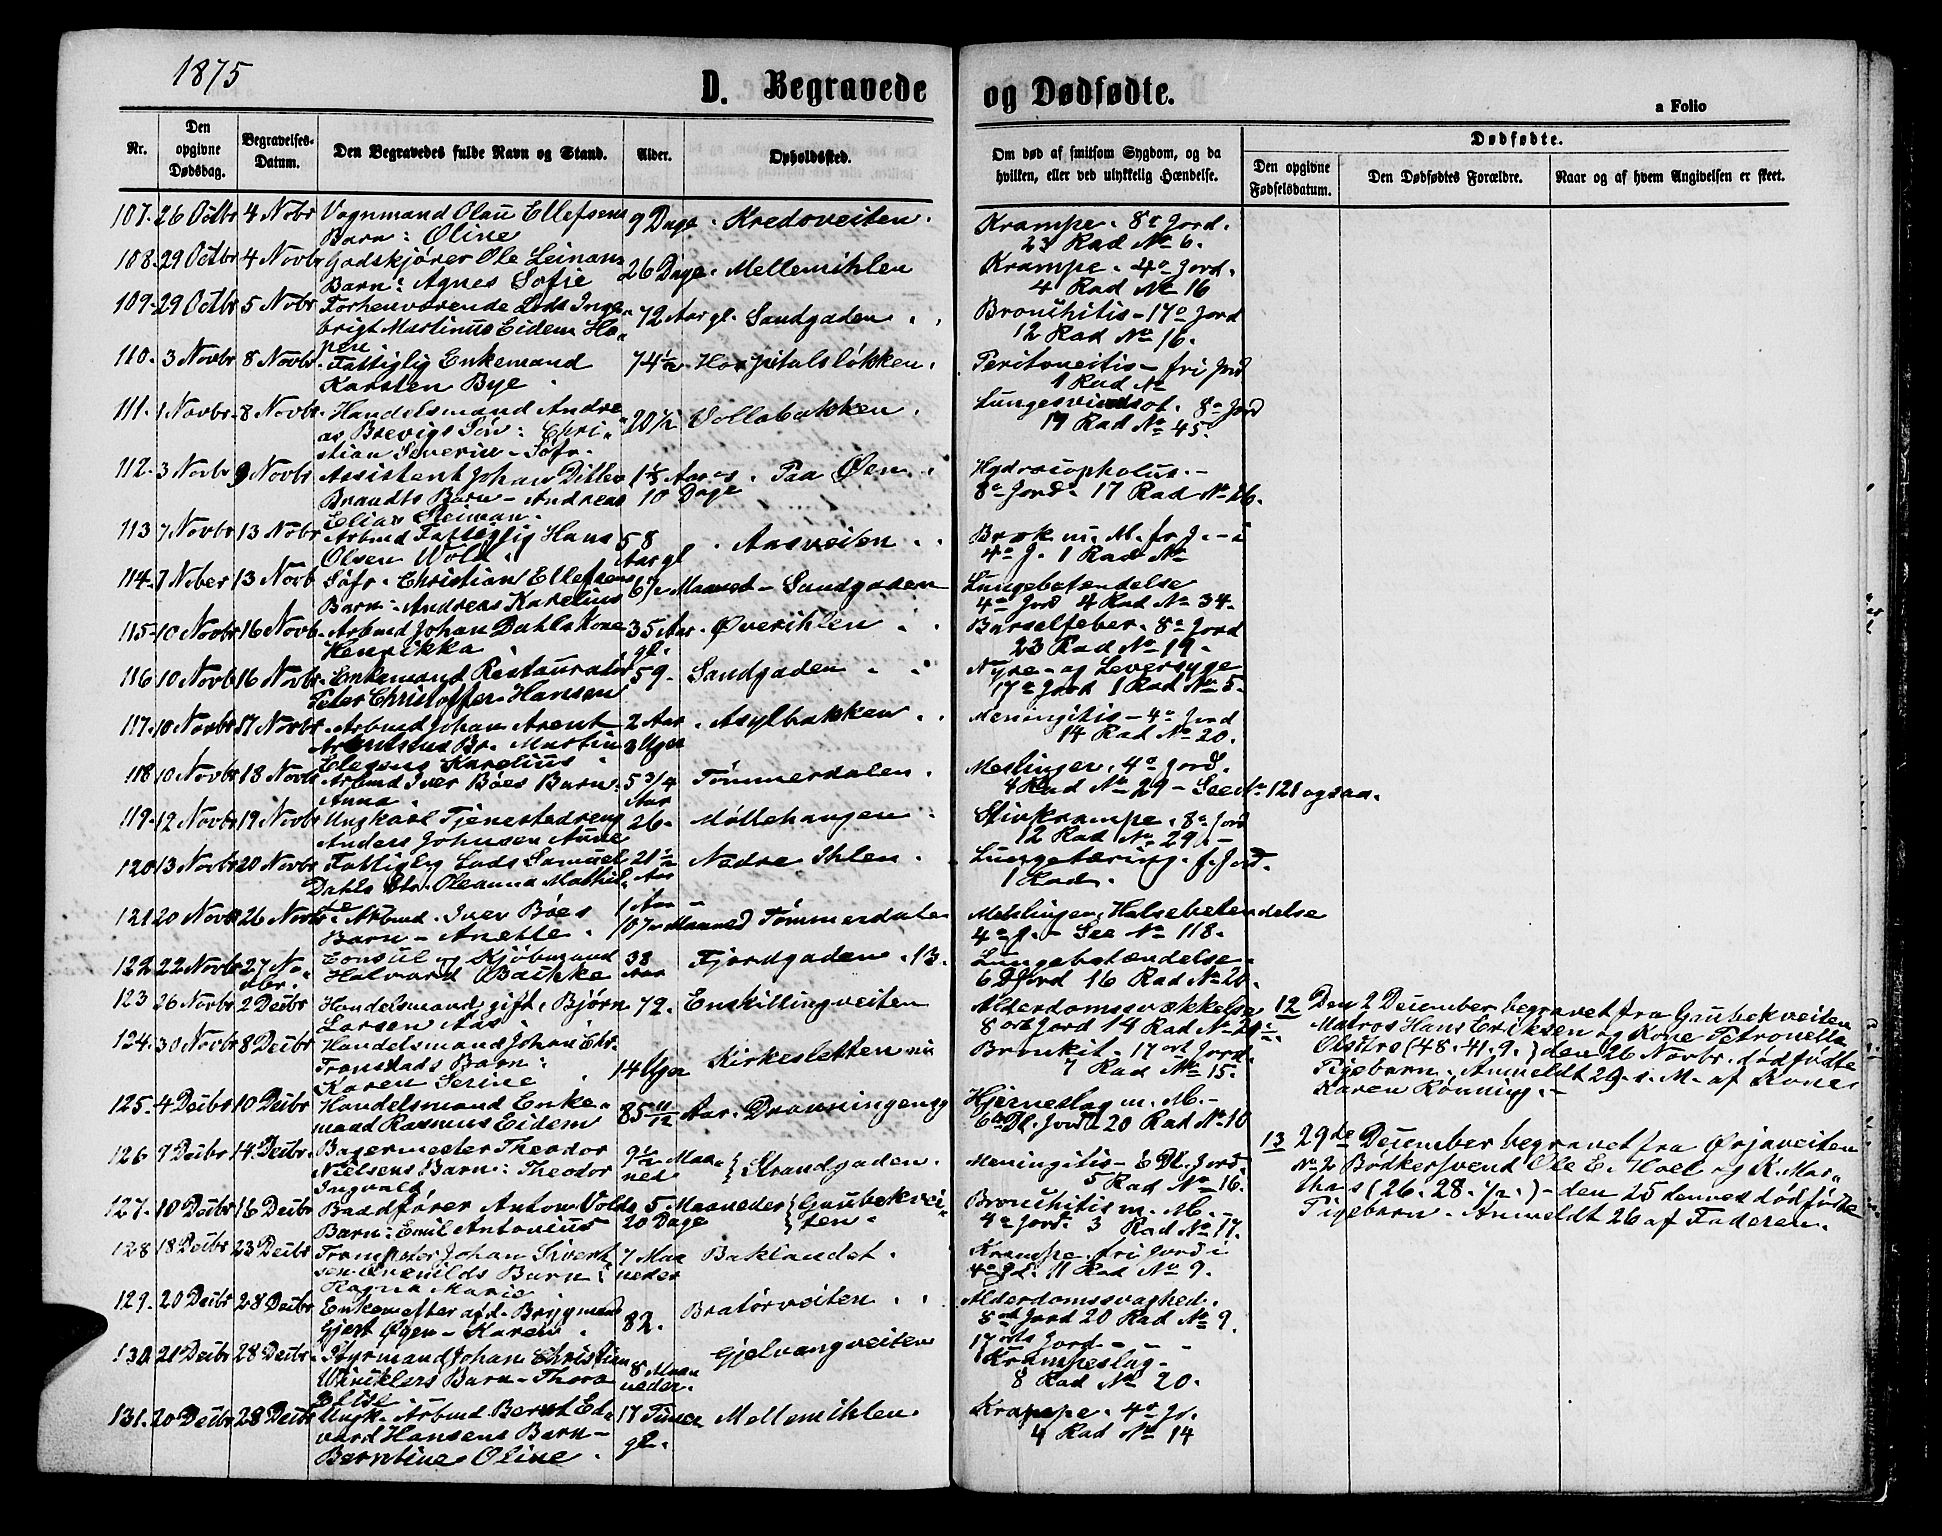 1875
D. Begravede
og Dødfødte.
a Folio
Nr.
Den opgivne Dødsdag.
Begravelses-Datum.
Den Begravedes fulde Navn og Stand.
Alder.
Opholdssted.
Om død af smitsom Sygdom, og da hvilken, eller ved ulykkelig Hændelse.
Dødfødte.
Den opgivne Fødselsdatum.
Den Dødfødtes Forældre.
Naar og af hvem Angivelsen er skeet.
107. 26 Octbr 4 Nobr Vognmand Olau Ellefsens 9 Dage. Kredoveiten. Krampe. 8e Jord.
Barn: Oline 23 Rad No 6.
108. 29 Octbr 4 Novbr Godskjører Ole Leinans 26 Dage. Mellemihlen Krampe. 4e Jord.
Barn: Agnes Sofie 4 Rad No 16
109. 29 Octbr 5 Novbr Forhenværende Lods Inge- 72 Aar gl. Sandgaden Bronchitis - 17e Jord
brigt Martinus Eidem Ho- 12 Rad No 16.
pen.
110. 3 Novbr 8 Novbr Fattiglig Enkemand 74 1/2 Hospitalsløkken. Peritoneitis - fri Jord
Karsten Bye. 1 Rad No
111. 1 Novbr. 8 Novbr. Handelsmand Andre- 20 1/2 Vollabakken. Lungesvindsot. 8e Jord
as Brevigs Søn: Chri- 19 Rad No 45.
stian Severin - Søfr.
112. 3 Novbr 9 Novbr Assistent Johan Ditlev 1 1/2 Aar. Paa Øen. Hydrocephalus. -
Brandts Barn - Andreas 10 Dage 8e Jord. 17 Rad No 26.
Elias Steiman.
113 7 Novbr 13 Nobr Arbmd Fattiglig Hans 58 Aasveien Brok m. M. fr J. - i
Olsen Wold. Aar gl 4e J. 1 Rad No
114. 7 Nober 13 Novb Søfr. Christian Ellefsens 6 1/2 Maaned - Sandgaden Lungebetendelse
Barn - Andreas Karelius 4e Jord 4 Rad No 34.
115. 10 Novbr 16 Novb. Arbmd Johan Dahls Kone 35 Aar. Øverihlen Barselfeber. 8e Jord
Henrikka gl. 23 Rad No 19.
116 10 Novb 16 Novbr. Enkemand Restauratør 59. Sandgaden Nyre- og Leversyge
Peter Christoffer Hansen 17e Jord 1 Rad No 5.
117. 10 Novbr 17 Novbr. Arbmd Johan Arent 2 Aar. Asylbakken Meningitis - 4e Jord
Arentsens Br. Martin 3 Uger 14 Rad No 20.
Elesens Karelius
118 10 Novbr 18 Novb Arbmd Iver Bøes Barn. 5 3/4 Tømmerdalen. Meslinger. 4e Jord.
Anna Aar 4 Rad No 29 - See No 121 ogsaa.
119. 12 Novbr 19 Novbr Ungkarl Tjenestedreng 26. Møllehaugen Stivkrampe. 8e Jord
Anders Johnsen Aune 12 Rad No 29. -
120 13 Novbr 20 Novbr Fattiglig Lods Samuel 21 1/2 Nedre Ihlen. Lungetæring. f. Jord.
Dahls Dtr. Oleanna Mathil- Aar 1 Rad.
de
121 20 Novb 26 Novbr Arbmd. Iver Bøes 1 Aar - Tømmerdalen Meslinger, Halsebetendelse
Barn - Anette. 10 Maaned 4e J. - See No 118.
122 22 Novbr 27 No- Consul og Kjøbmand 38 Fjordgaden. 13. Lungebetændelse.
vbr. Halvard Bachke Aar 6 D Jord 16 Rad No 20.
123 26 Novbr 2 Decbr Handelsmand gift, Bjørn 72. Enskillingveiten Alderdomssvækkelse
Larsen Aas 8de Jord 14 Rad No
124. 30 Novbr 8 Decbr Handelsmand Johan Chr. 14 Uger Kirkesletten Bronkit. 17de Jord.
Tronstads Barn: 7 Rad No 15.
Karen Serine
125. 4 Decbr 10 Decbr Handelsmand Enke- 85 11/12 Aar. Dronningengg Hjerneslag m. M. -
mand Rasmus Eidem 6te Dl. Jord 20 Rad No 10
126 9 Decbr 14 Decbr. Bagermester Theodor 9 1/2 Maa- Strandgaden. Meningitis - 6 Dl. Jord.
Nielsens Barn: Theodor ned 5 Rad No 16.
Ingvald
127. 10 Decbr 16 Decbr Baadfører Anton Volds 5 Maaneder Gaubekvei- Bronchitis m. M. -
Barn: Emil Antonius 20 Dage ten. 4e Jord. 3 Rad No 17.
128 18 Decbr 23 Decbr Johan Sivert- 7 Maa- Baklandet. Krampe. fri Jord i
sen Barn: neder 4e Jd. 11 Rad No 9.
Ragna Marie
129. 20 Decbr 28 Decbr Enken efter afd. Brygmand 82. Bratørveiten Alderdomssvaghed.
Gjert Øyen - Karen 8de Jord 20 Rad No 9.
130 21 Decbr 28 Decbr. Styrmand Johan Christian 8 Maa- Gjelvangveiten 17de Jord
Winklers Barn - Thora neder. Krampeslag -
Elise 8 Rad No 20.
131. 20 Decbr 28 Decbr Ungk. Arbmd Bernt Ed- 17 Timer Mellemihlen. Krampe. 4e Jo.
vard Hansens Barn - gl. 4 Rad No 14
Berntine Oline.
12 Den 2 December begravet fra Gaubekveiten
Matros Hans Eriksen og Kone Petronella
Olsdtr (48. 41. 9.) den 26 Novbr. dødfødte
Pigebarn. Anmeldt 29 s. M. af Kone
Karen Rønning. -
13 29de December begravet fra Ørjaveiten
No 2 Bødkersvend Ole E. Hoel og K. Mar-
thas (26. 28. 1/2.) - den 25 denned dødfødte
Pigebarn. Anmeldt 26 af Faderen.